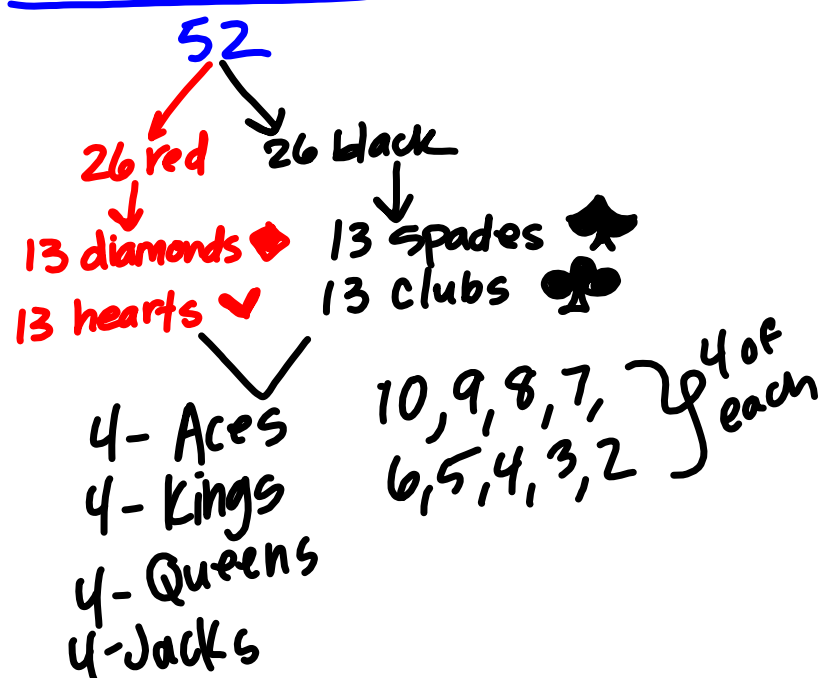 52
26 red
26 black
13 diamonds
13 spades
13 hearts
13 clubs
4 - Aces
4 - Kings
4 - Queens
4 - Jacks
10, 9, 8, 7,
6, 5, 4, 3, 2
4 of
each